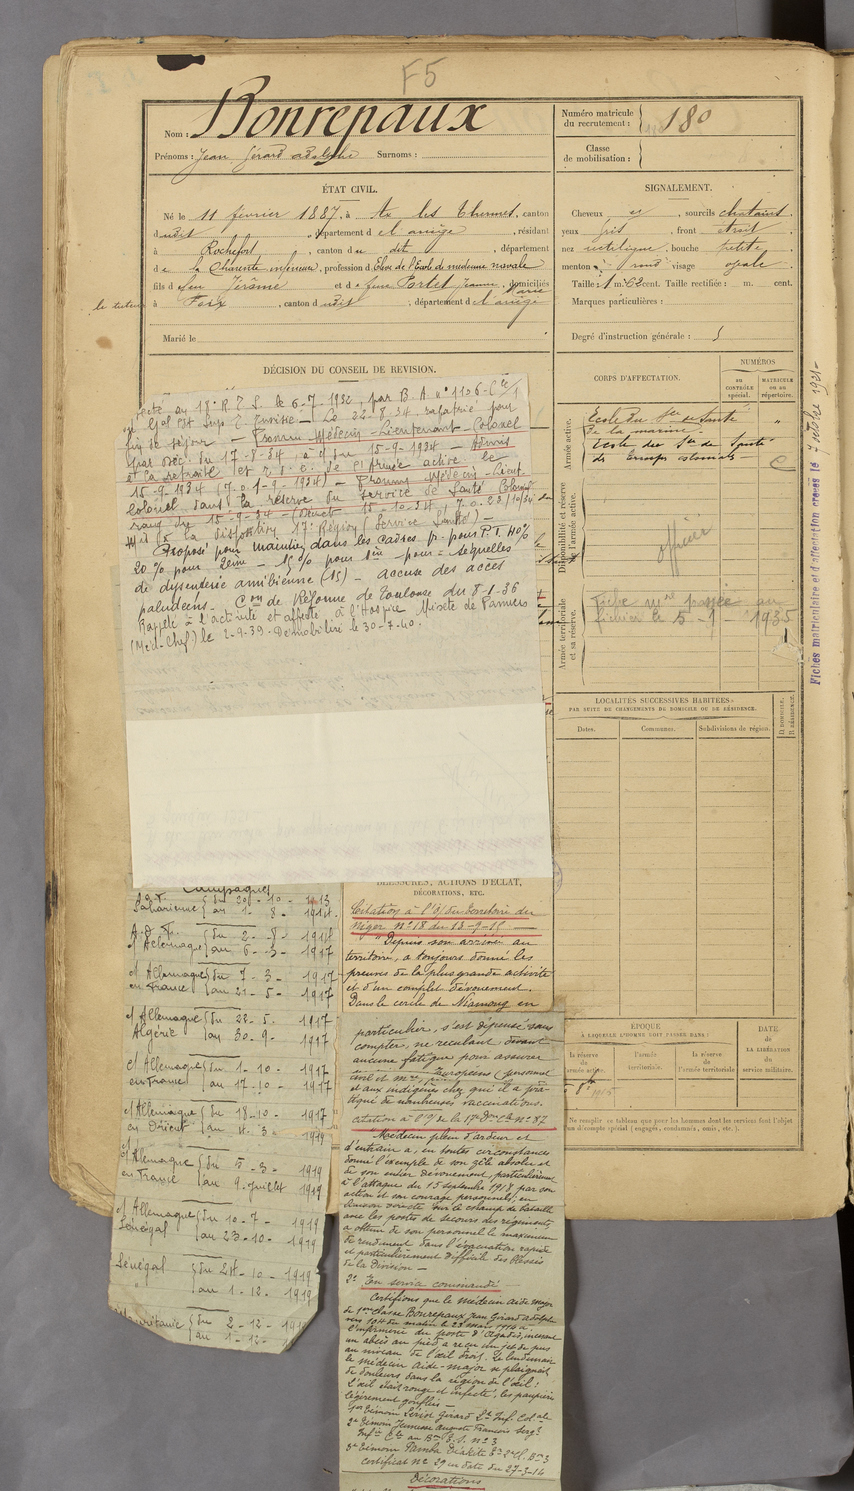 F5
Nom : Bonrepaux
Prénoms : Jean Gérard Adolphe Surnoms :
Numéro matricule
du recrutement : 180
Classe
de mobilisation :
ÉTAT CIVIL.
Né le 11 février 1887, à Ax les Thermes, canton
dudit, département de l'ariège, résidant
à Rochefort, canton du dit, département
de la Charente inférieure, profession d'Elève de l'Ecole de médecine navale
fils de feu Jérôme et de feue Portet Jeanne Marie, domiciliés
le tuteur à Foix, canton dudit, département de l'ariège
Marié le
SIGNALEMENT.
Cheveux et, sourcils chatains.
yeux gris, front étroit
nez rectiligne, bouche petite
menton rond visage ovale
Taille : 1 m. 62 cent. Taille rectifiée : m. cent.
Marques particulières :
Degré d'instruction générale : 5
DÉCISION DU CONSEIL DE REVISION.
CORPS D'AFFECTATION.
NUMÉROS
AU CONTRÔLE spécial.
MATRICULE OU AU répertoire.
Armée active.
Ecole du Sce de Santé
de la marine.
Ecole du Sce de Santé
des Troupes coloniales
Disponibilité et réserve
de l'armée active.
officier
Armée territoriale
et sa réserve.
Fiche mre passée au
fichier le 5-1-1935
Fiches matriculaire et d'affectation créées le 7 octobre 1921
au 18e R.T.S. le 6-7-1932, par B.A. n° 1126-C/1
Gal Cdt Sup. T. Tunisie - Le 22-8-34, rapatrié pour
fin de séjour - Promu Médecin-Lieutenant-Colonel
par Déc. du 17-8-34, à c/ du 15-9-1934 - Admis
et la retraite et r.d.c. de l'Armée active le
15-9-1934 (J.O. 1-9-1934) - Promu Médecin-Lieut
Colonel dans la réserve du Service de Santé Colonial
rang du 15-9-34 (Décret 15-10-34, J.O. 23/10/34)
Mis à la disposition 17e Région (Service Santé) -
Proposé pour maintien dans les cadres p. pour P.T. 40%
20% pour 2ème - 15% pour 1ère pour = sequelles
de dysenterie amibienne (15) - accuse des accès
paludéens. Con de Réforme de Toulouse du 8-1-36
Rappelé à l'activité et affecté à l'Hospice Mixte de Pamiers
(Méd-Chef) le 2-9-39. Démobilisé le 30-7-40.
LOCALITÉS SUCCESSIVES HABITÉES
PAR SUITE DE CHANGEMENTS DE DOMICILE OU DE RÉSIDENCE.
Dates.
Communes.
Subdivisions de région.
D. DOMICILE.
R. RÉSIDENCE.
ÉPOQUE
À LAQUELLE L'HOMME DOIT PASSER DANS :
la réserve
de
l'armée active.
l'armée
territoriale.
la réserve
de
l'armée territoriale
DATE
de
LA LIBÉRATION
du
service militaire.
Ne remplir ce tableau que pour les hommes dont les services font l'objet
d'un décompte spécial (engagés, condamnés, omis, etc.).
Campagnes
Saharienne { du 20-10-1913
au 1-8-1914.
A.O.F.
c/ Allemagne { du 2-8-1914
au 6-3-1917
c/ Allemagne
en France { du 7-3-1917
au 21-5-1917
c/ Allemagne
Algérie { du 22-5.1917
au 30-9-1917
c/ Allemagne
en France { du 1-10-1917
au 17-10-1917
c/ Allemagne
en Orient { du 18-10-1917
au 4.3-1919
c/ Allemagne
en France { du 5-3-1919
au 9-juillet 1919
c/ Allemagne
Sénégal { du 10-7-1919
au 23-10-1919
Sénégal { du 24-10-1919
au 1-12-1919
Mauritanie { du 2-12-1919
au 1-12-
BLESSURES, ACTIONS D'ÉCLAT,
DÉCORATIONS, ETC.
Citation à l'O/ du Territoire du
Niger n° 18 du 13-9-15
"Depuis son arrivée au
territoire, a toujours donné les
preuves de la plus grande activité
et d'un complet dévouement.
Dans le cercle de Niamey en
particulier, s'est dépensé sans
compter, ne reculant devant
aucune fatigue pour assurer
Européens (personnel
civil et mre)
et aux indigènes chez qui il a pra-
tiqué de nombreuses vaccinations.
Citation à l'O/ de la 17e Don Cle n° 87
"Médecin plein d'ardeur et
d'entrain a, en toutes circonstances
donné l'exemple de son zèle absolu et
de son entier dévouement, particulièrement
à l'attaque du 15 septembre 1918 par son
action et son courage personnels; en
liaison étroite sur le champ de bataille
avec les postes de secours des régiments,
a obtenu de son personnel le maximum
de rendement dans l'évacuation rapide
et particulièrement difficile des blessés
de la Division -
2° En service commandé
Certifions que le médecin aide major
de 1ère classe Bonrepaux Jean Gérard Adolphe
vers 10H du matin le 23 mars 1916 à
l'infirmerie du poste d'Agadès, incisant
un abcès au pied a reçu un jet de pus
au niveau de l'œil droit. Le lendemain
le médecin aide-major se plaignait
de douleurs dans la région de l'œil :
L'œil était rouge et infecté, les paupières
légèrement gonflées -
1er témoin Gérard Lt Inf. Colale
2e témoin Jeunesse Auguste François Sergt
Infie Cle au Bon n° 3
3e témoin Samba Diakité
Certificat n° 29 en date du 27-3-16
Décorations